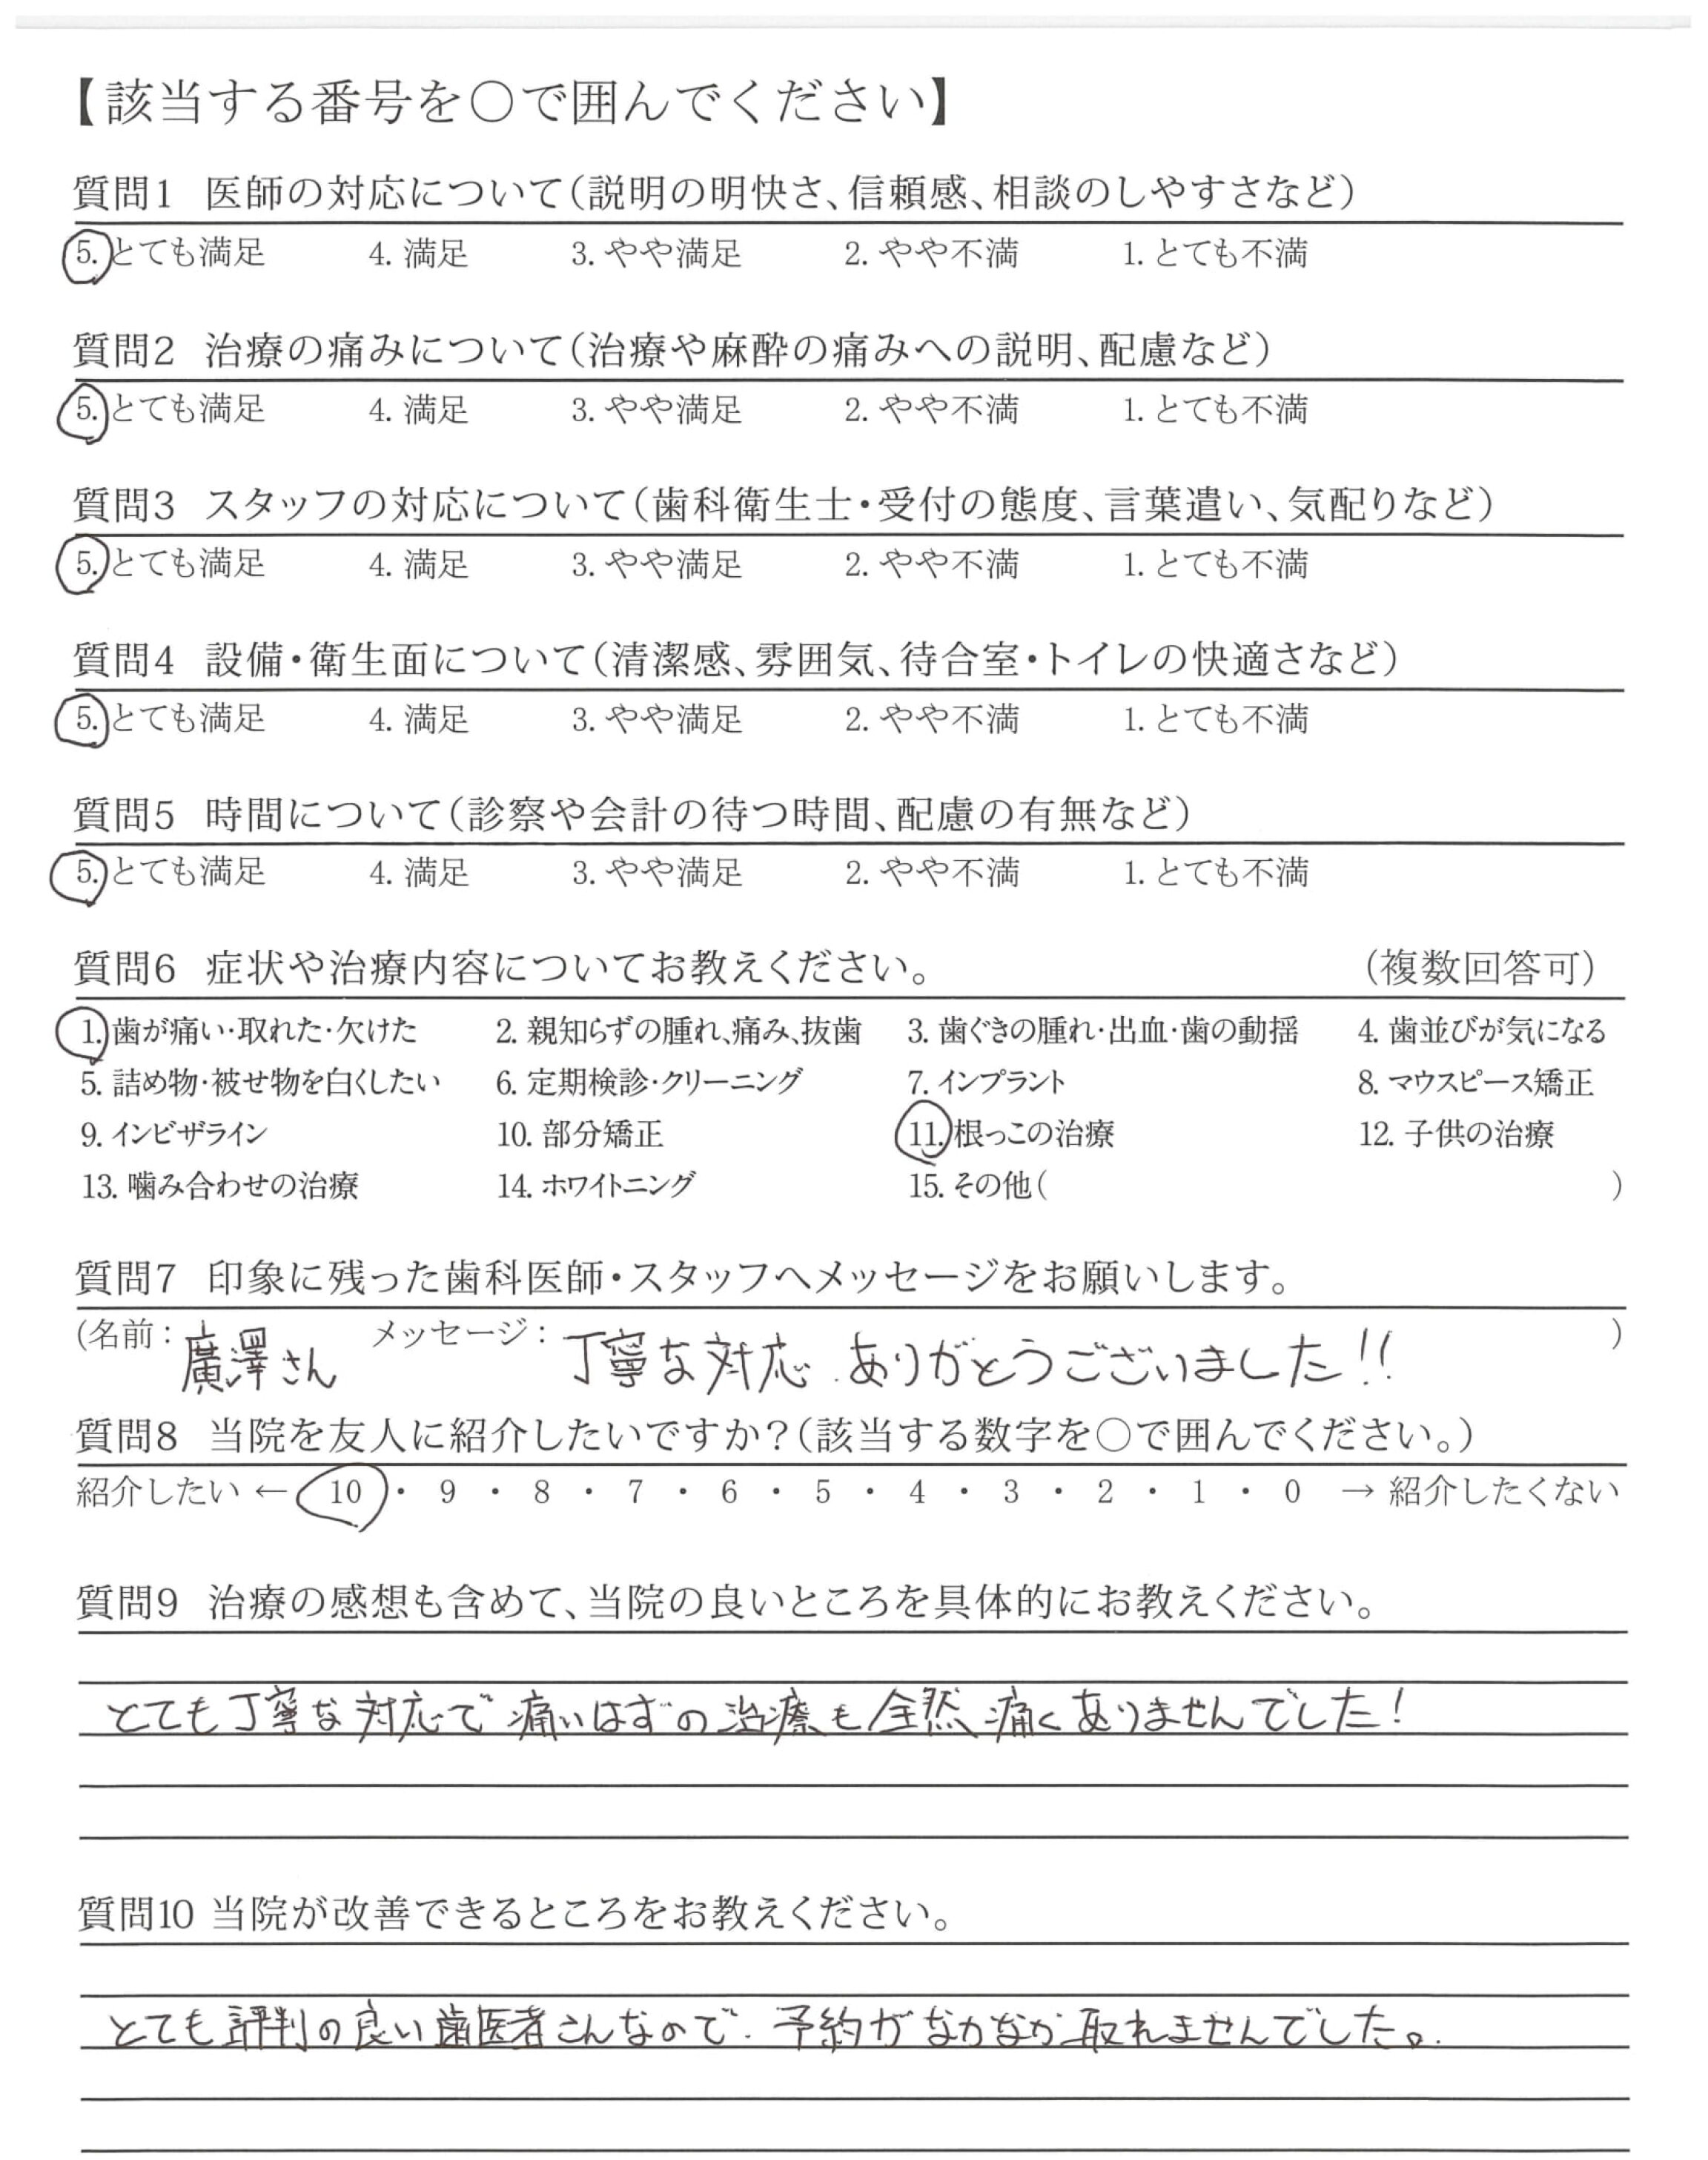 【該当する番号を〇で囲んでください】
質問1 医師の対応について（説明の明快さ、信頼感、相談のしやすさなど）
5. とても満足 4. 満足 3. やや満足 2. やや不満 1. とても不満
質問2 治療の痛みについて（治療や麻酔の痛みへの説明、配慮など）
5. とても満足 4. 満足 3. やや満足 2. やや不満 1. とても不満
質問3 スタッフの対応について（歯科衛生士・受付の態度、言葉遣い、気配りなど）
5. とても満足 4. 満足 3. やや満足 2. やや不満 1. とても不満
質問4 設備・衛生面について（清潔感、雰囲気、待合室・トイレの快適さなど）
5. とても満足 4. 満足 3. やや満足 2. やや不満 1. とても不満
質問5 時間について（診察や会計の待つ時間、配慮の有無など）
5. とても満足 4. 満足 3. やや満足 2. やや不満 1. とても不満
質問6 症状や治療内容についてお教えください。 （複数回答可）
1. 歯が痛い・取れた・欠けた 2. 親知らずの腫れ、痛み、抜歯 3. 歯ぐきの腫れ・出血・歯の動揺 4. 歯並びが気になる
5. 詰め物・被せ物を白くしたい 6. 定期検診・クリーニング 7. インプラント 8. マウスピース矯正
9. インビザライン 10. 部分矯正 11. 根っこの治療 12. 子供の治療
13. 噛み合わせの治療 14. ホワイトニング 15. その他（ ）
質問7 印象に残った歯科医師・スタッフへメッセージをお願いします。
（名前：廣澤さん メッセージ：丁寧な対応、ありがとうございました!! ）
質問8 当院を友人に紹介したいですか？（該当する数字を〇で囲んでください。）
紹介したい ← 10 ・ 9 ・ 8 ・ 7 ・ 6 ・ 5 ・ 4 ・ 3 ・ 2 ・ 1 ・ 0 → 紹介したくない
質問9 治療の感想も含めて、当院の良いところを具体的にお教えください。
とても丁寧な対応で痛いはずの治療も全然痛くありませんでした!
質問10 当院が改善できるところをお教えください。
とても評判の良い歯医者さんなので、予約がなかなか取れませんでした。